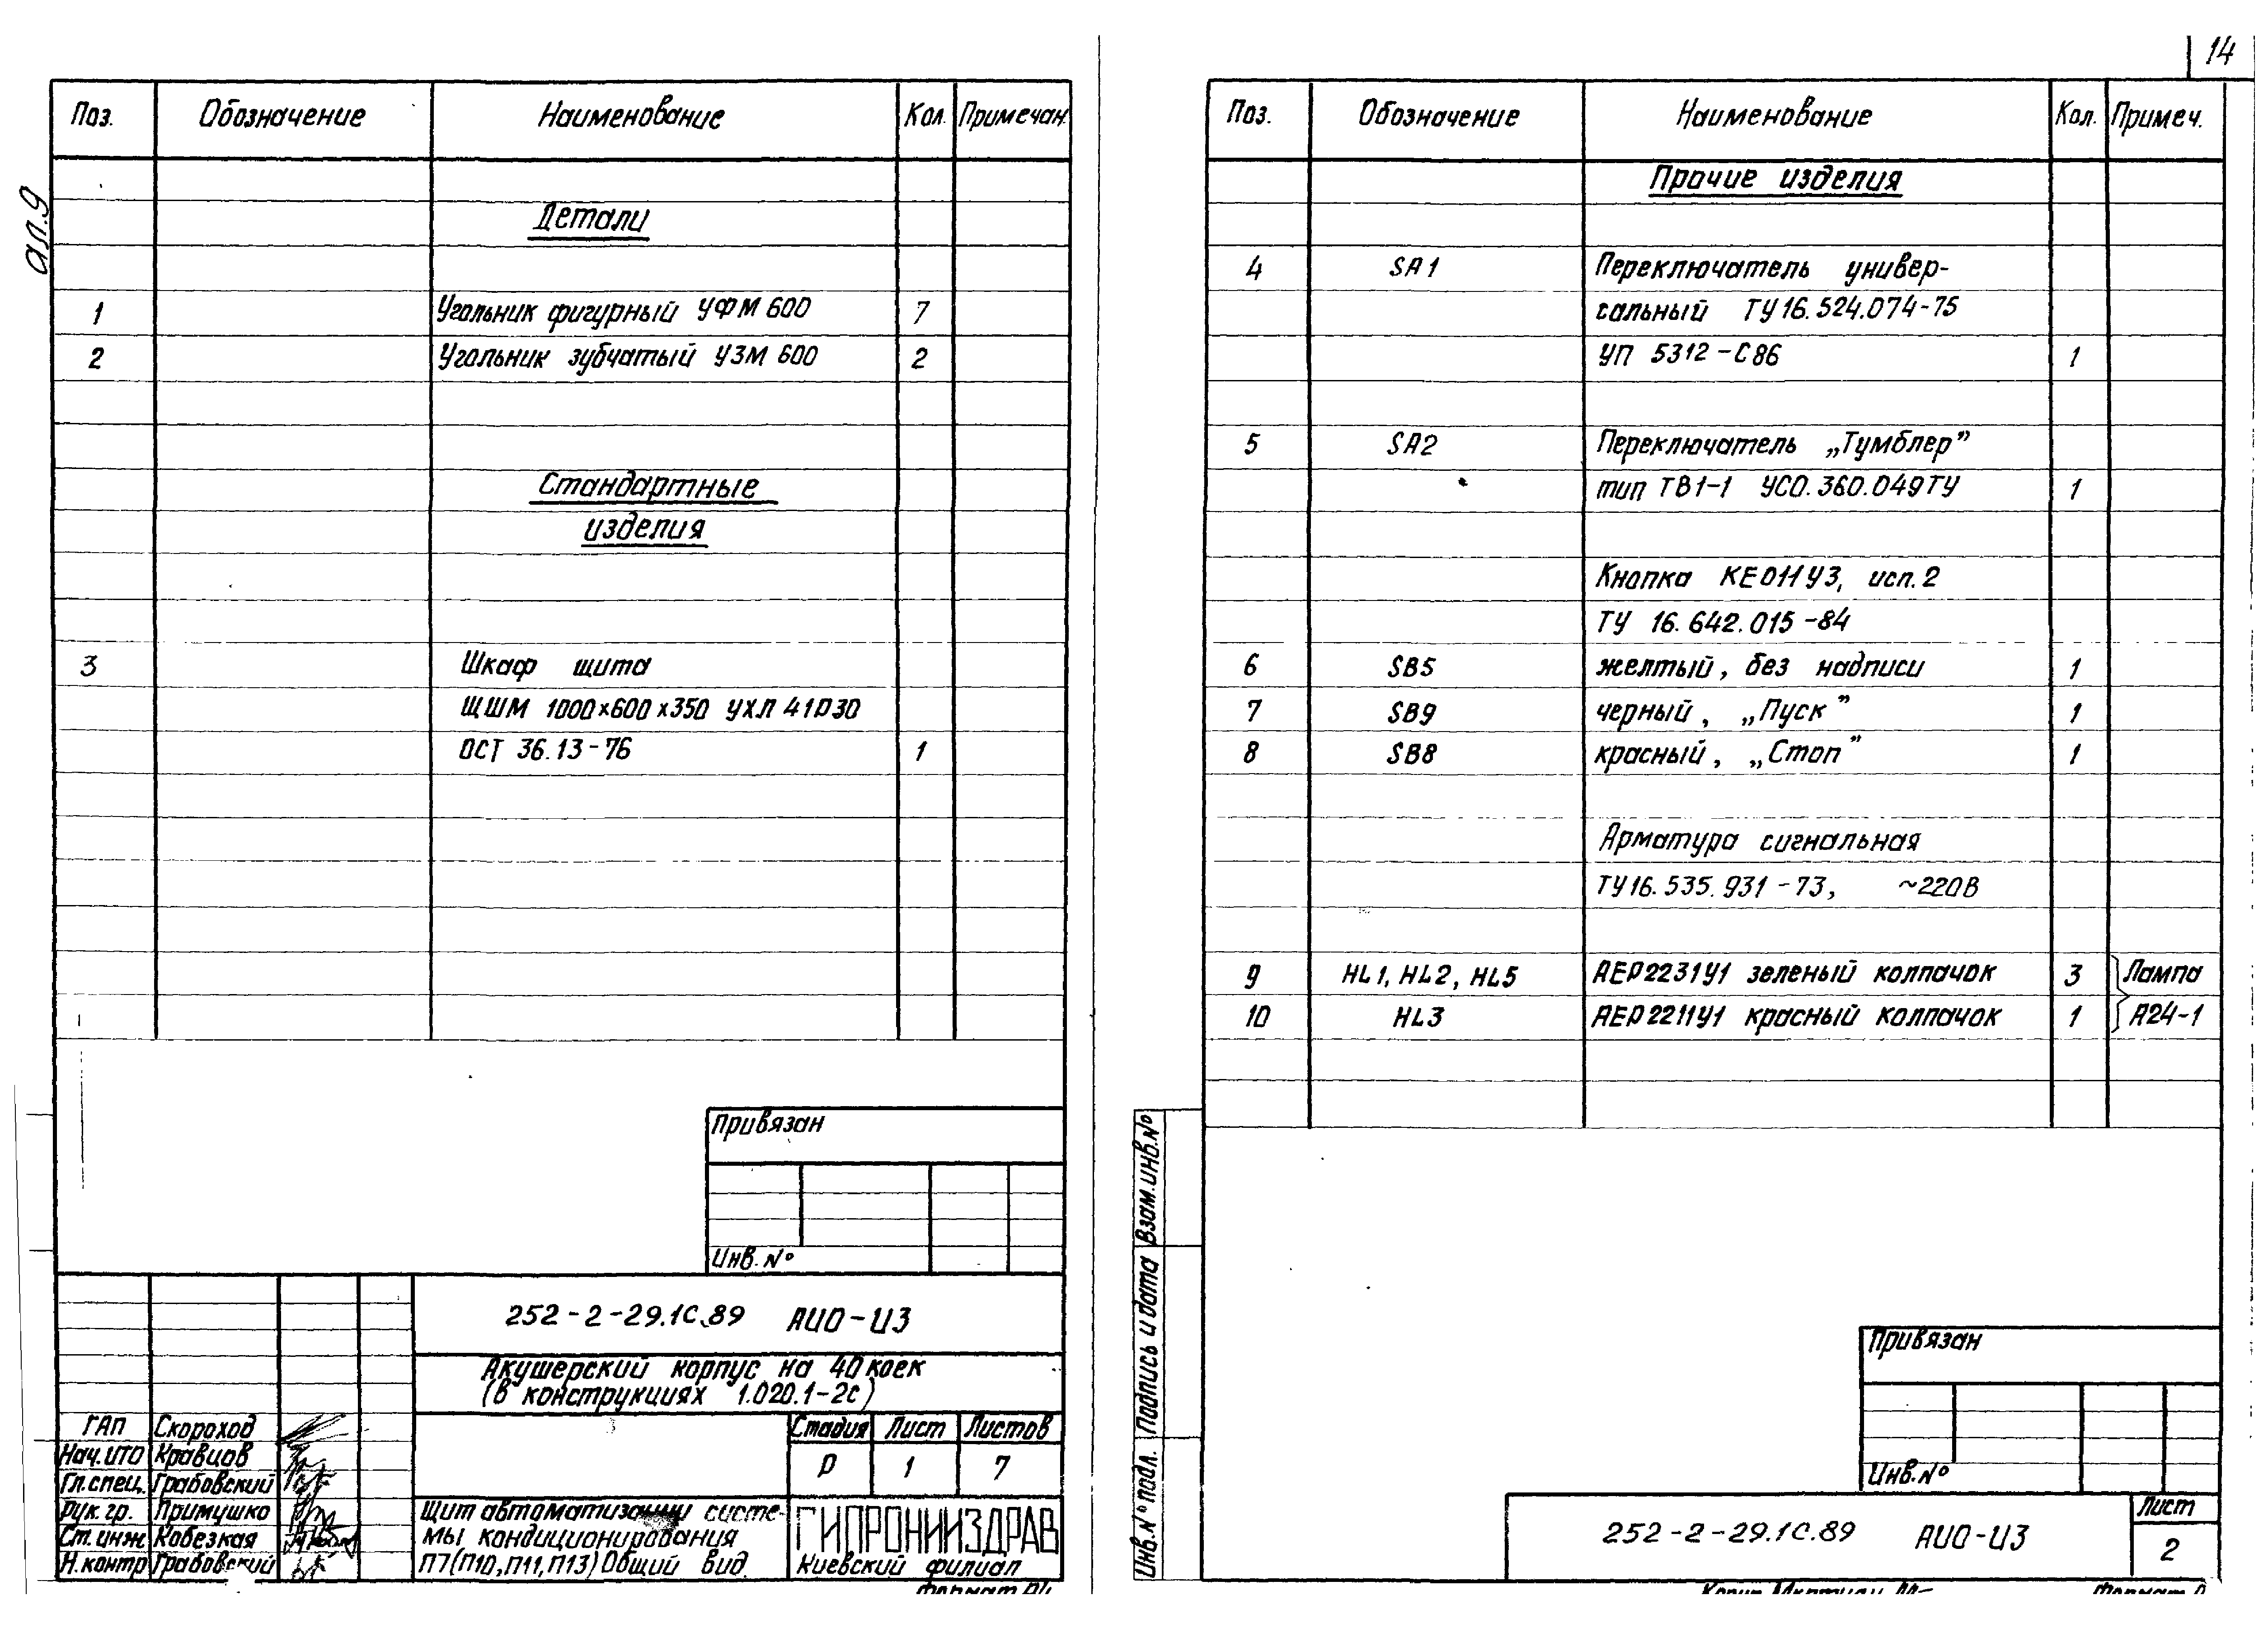 14
ал.9
Поз. Обозначение Наименование Кол. Примечан.
Детали
1 Угольник фигурный УФМ 600 7
2 Угольник зубчатый УЗМ 600 2
Стандартные
изделия
3 Шкаф щита
ЩШМ 1000×600×350 УХЛ 41Р30
ОСТ 36.13-76 1
Привязан
Инв. №
252-2-29.1с.89 АИО-И3
Акушерский корпус на 40 коек
(в конструкциях 1.020.1-2с)
ГАП Скороход
Нач. ИТО Кравцов
Гл. спец. Грабовский
Рук. гр. Примушко
Ст. инж. Кобезкая
Н. контр Грабовский
Стадия Лист Листов
Р 1 7
Щит автоматизации систе-
мы кондиционирования
П7(П10, П11, П13) Общий вид.
ГИПРОНИИЗДРАВ
Киевский филиал
Формат А4
Поз. Обозначение Наименование Кол. Примеч.
Прочие изделия
4 SA1 Переключатель универ-
сальный ТУ16.524.074-75
УП 5312-С86 1
5 SA2 Переключатель „Тумблер”
тип ТВ1-1 УСО.360.049ТУ 1
Кнопка КЕ011У3, исп. 2
ТУ 16.642.015-84
6 SB5 желтый, без надписи 1
7 SB9 черный, „Пуск” 1
8 SB8 красный, „Стоп” 1
Арматура сигнальная
ТУ16.535.931-73, ~220В
9 HL1, HL2, HL5 АЕР2231У1 зеленый колпачок 3 Лампа
10 HL3 АЕР2211У1 красный колпачок 1 А24-1
Инв. № подл. Подпись и дата Взам. инв. №
Привязан
Инв. №
252-2-29.1с.89 АИО-И3
Лист
2
Формат